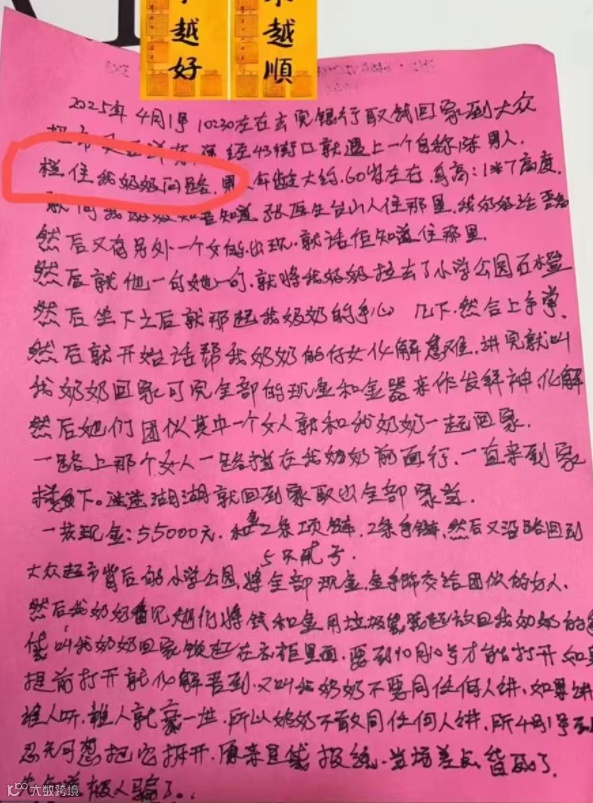 越好
越順
2025年4月1号10:30左右去完银行取钱回家到大众
街口就遇上一个自称 男人
拦住我奶奶问路.男 年龄大约.60岁左右.身高:1米7高度.
就问我奶奶知吾知道 张医生台山人住那里.我奶奶话吾知
然后又有另外一个女的出现.就话佢知道住那里.
然后就他一句她一句.就将我奶奶拉去了小学公园石凳
然后坐下之后就 起我奶奶的手心 几下.然合上手掌.
然后就开始话帮我奶奶的仔女化解急难.讲完就叫
我奶奶回家可完全部的现金和金器来作发解神化解
然后她们团伙其中一个女人就和我奶奶一起回家.
一路上那个女人一路挡在我奶奶前面行.一直来到家
楼下.迷迷湖湖就回到家取出全部家
一 现金:55000元. 2条项链.2条手链.然后又沿路回到
5只戒子
大众超市背后的小学公园.将全部现金.金手饰交给团伙的女人.
然后我奶奶看见她们将钱和金用垃圾袋装起放回我奶奶的
叫我奶奶回家锁起在衣柜里面.要到10月10号才能打开如果
提前打开就化解吾到.又叫我奶奶不要同任何人讲.如果讲
谁人听.谁人就 .所以奶奶不敢同任何人讲.所4月1号
忍无可 把它拆开.原来是袋报纸.当场差点
被人骗了.
大数跨境